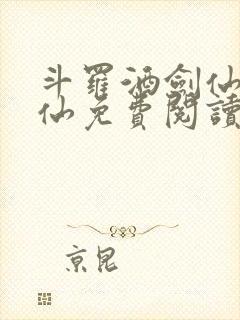 斗羅酒劍仙
仙免費閱讀
京昆